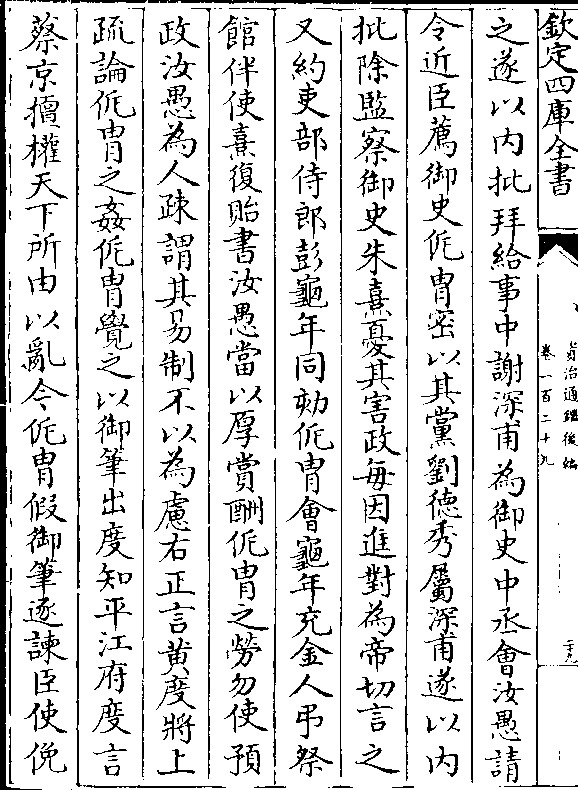 欽定四庫全書
資治通鑑後編
卷一百二十九
之遂以内批拜給事中謝深甫為御史中丞會汝愚請
令近臣薦御史侂胄密以其黨劉德秀屬深甫遂以内
批除監察御史朱熹憂其害政每因進對為帝切言之
又約吏部侍郎彭龜年同劾侂胄會龜年充金人弔祭
館伴使熹復貽書汝愚當以厚賞酬侂胄之勞勿使預
政汝愚為人疎謂其易制不以為慮右正言黄度將上
疏論侂胄之姦侂胄覺之以御筆出度知平江府度言
蔡京擅權天下所由以亂今侂胄假御筆逐諫臣使俛